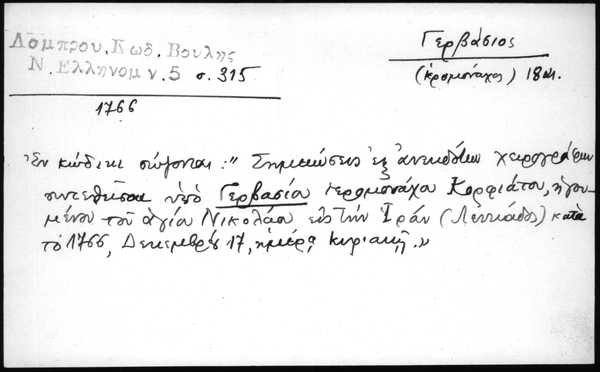 Λάμπρου, Κωδ. Βουλης
Ν. Ελληνομν. 5 σ. 315
1766
Γερβάσιος
(ἱερομονάχος) 18 αι.
Ἐν κώδικι σώζονται: "Σημειώσεις ἐξ ἀνεκδότων χειρογράφων
συντεθεῖσαι ὑπὸ Γερβασίου ἱερομονάχου Κορφιάτου, ἡγου-
μένου τοῦ ἁγίου Νικολάου εἰς τὴν Ἰράν (Λευκάδος) κατὰ
τὸ 1766, Δεκεμβρίου 17, ἡμέρᾳ κυριακῇ."